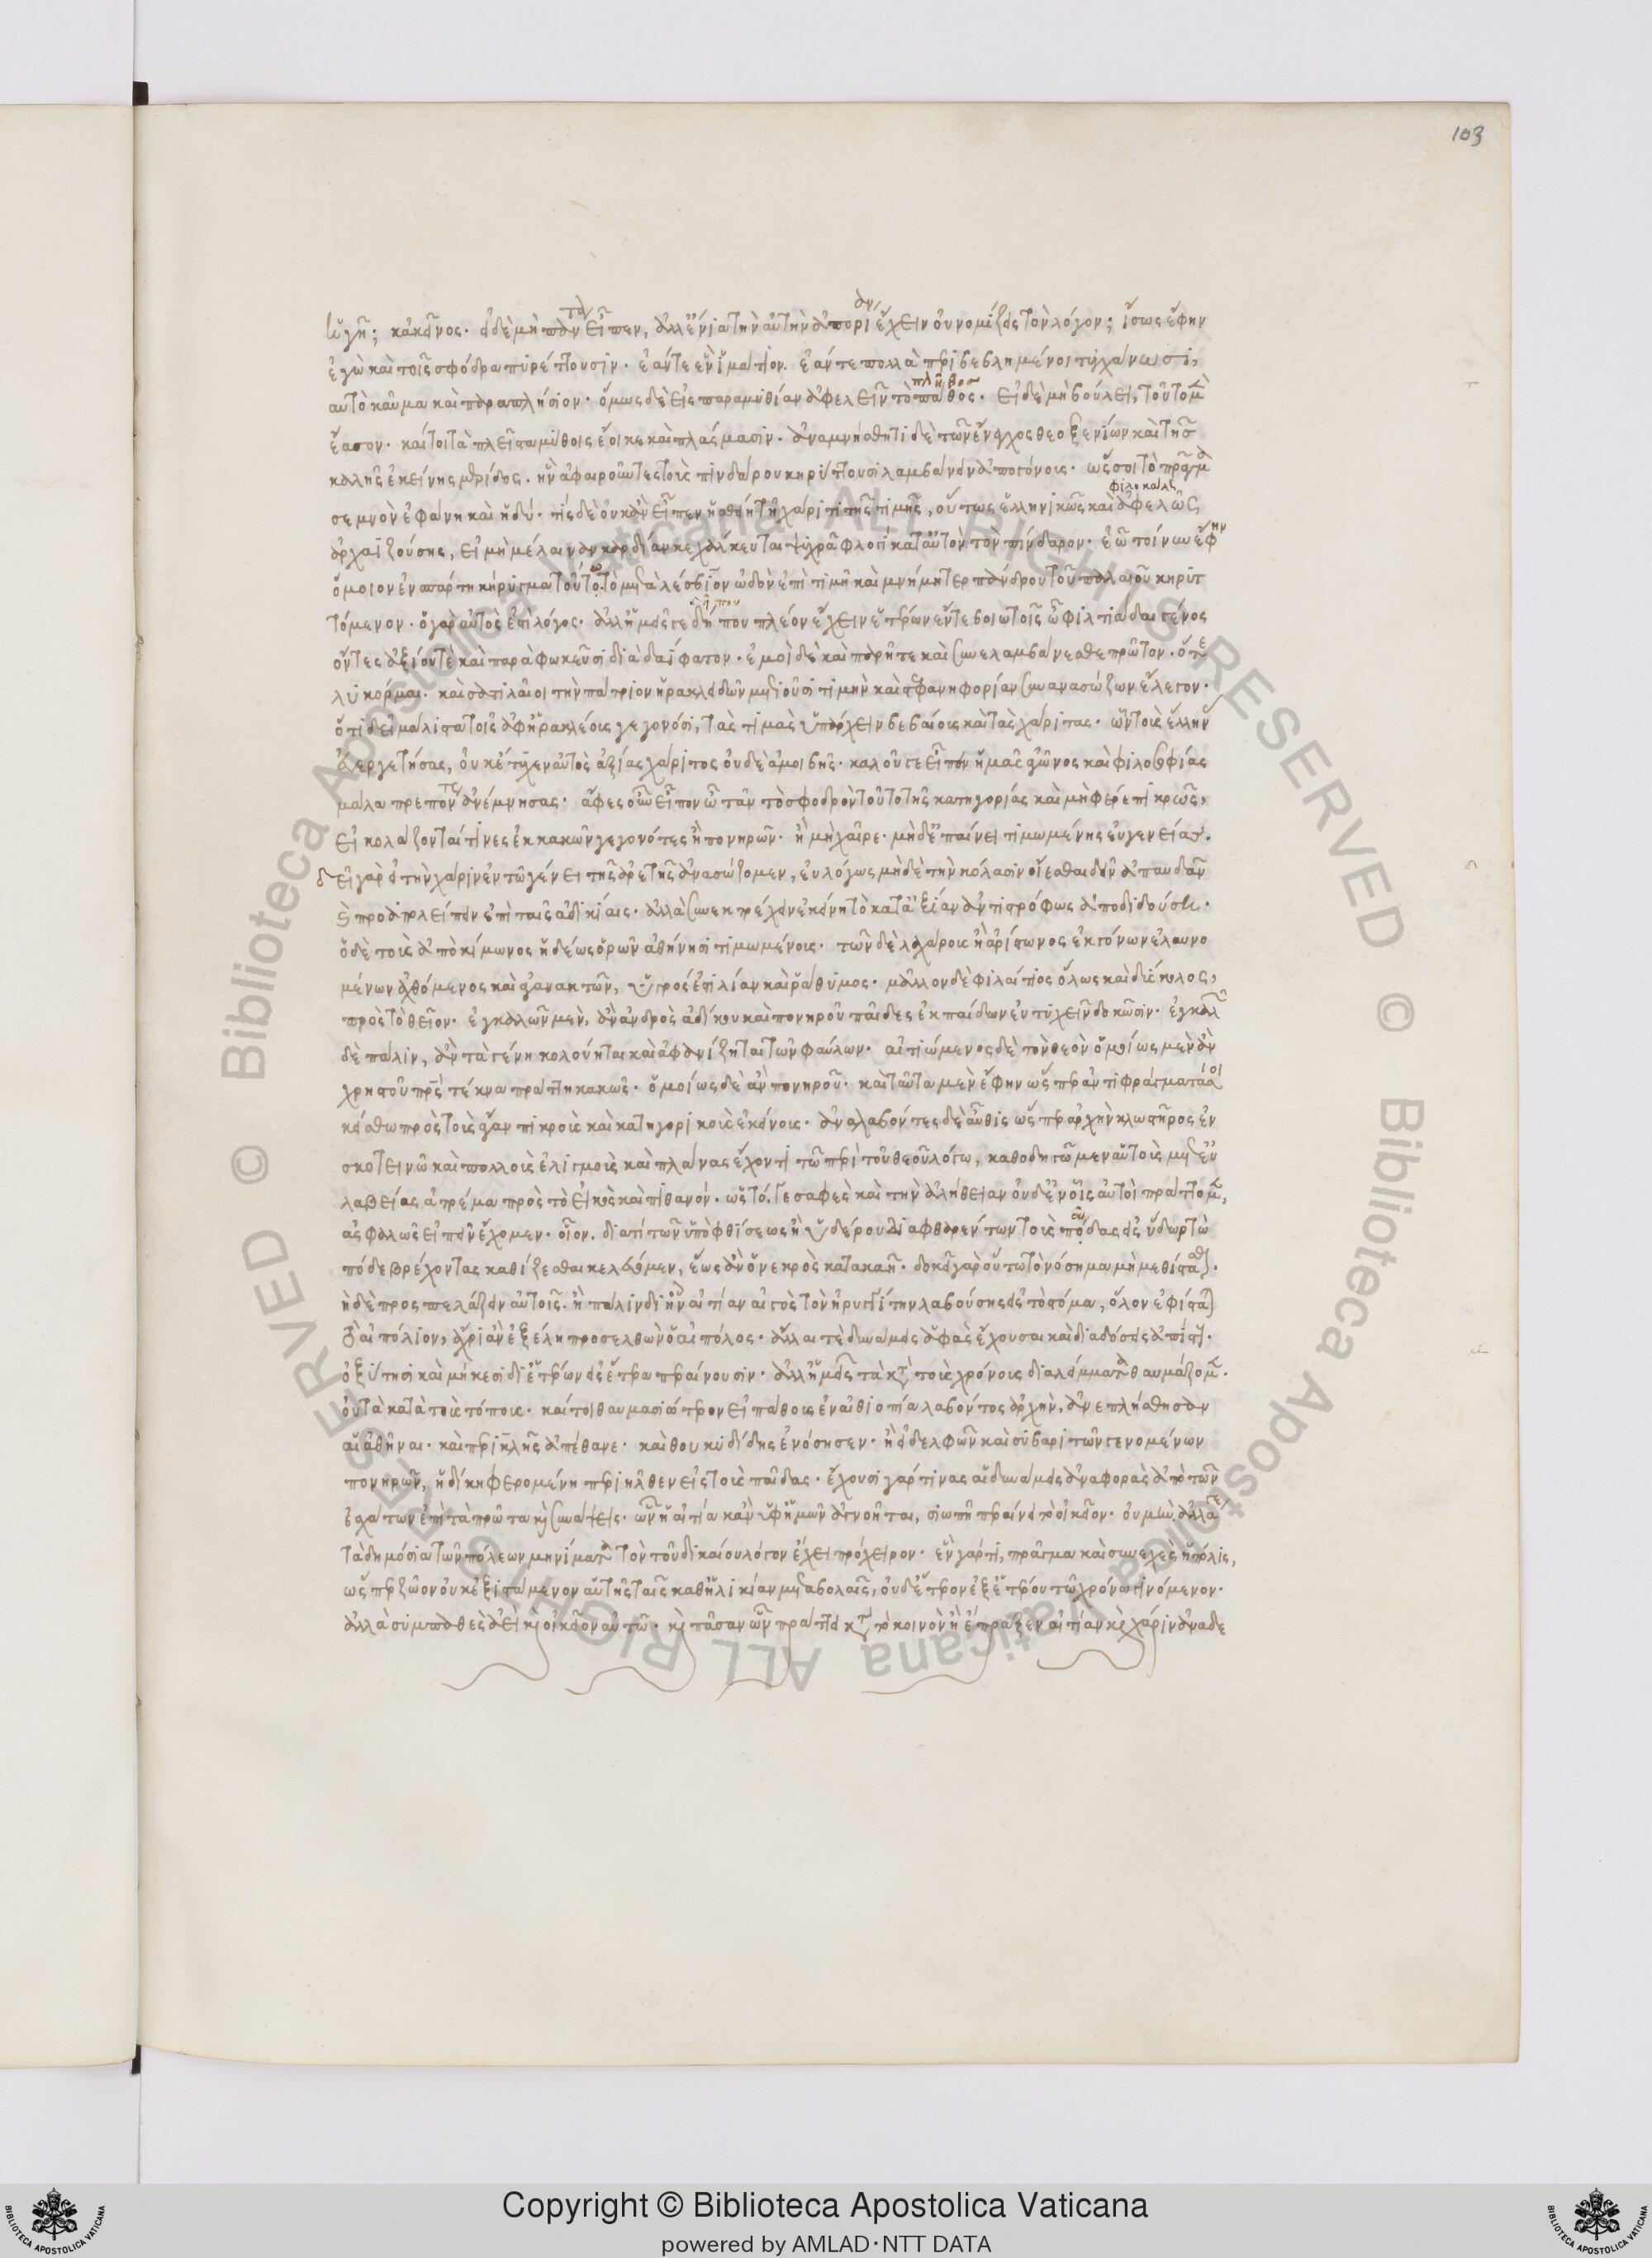 103
ὡγῆ; κἀκεῖνος· εἰ δὲ μὴ πάντα εἶπεν, ἀλλ' ἔνια τὴν αὐτὴν ἀπορίαν ἔχειν οὐ νομίζεις τὸν λόγον; ἴσως ἔφην
ἐγὼ καὶ τοῖς σφόδρα πυρέττουσιν· ἐάν τε ἓν ἱμάτιον. ἐάν τε πολλὰ περιβεβλημένοι τυγχάνωσι,
αὐτὸ καῦμα καὶ παραπλήσιον· ὅμως δὲ εἰς παραμυθίαν ἀφελεῖν τὸ πάθος πλῆθος· εἰ δὲ μὴ βούλει, τοῦτο μὲν
ἔασον· καίτοι τὰ πλεῖστα μύθοις ἔοικε καὶ πλάσμασιν· ἀναμνήσθητι δὲ τῶν ἔναγχος θεοξενίων καὶ τῆς
καλῆς ἐκείνης μερίδος. ἣν ἀφαιροῦντες τοὺς πινδάρου κηρύττουσι λαμβάνειν ἀπογόνους· ὥς σοι τὸ πρᾶγμα
σεμνὸν ἐφάνη καὶ ἡδύ· τίς δὲ οὐκ ἂν εἶπεν ἡσθείη τῇ χάριτι τῆς τιμῆς, οὕτως ἑλληνικῶς καὶ ἀφελῶς φιλοκάλως
ἀρχαϊζούσης, εἰ μὴ μέλαιναν καρδίαν κεχάλκευται ψυχρᾷ φλογὶ κατ' αὐτὸν τὸν πίνδαρον· ἐῶ τοίνυν ἔφην
ὅμοιον ἐν σπάρτῃ κήρυγμα τούτῳ. τὸ μετὰ λέσβιον ὠδὸν ἐπὶ τιμῇ καὶ μνήμῃ τερπάνδρου τοῦ παλαιοῦ κηρυτ
τόμενον· ὁ γὰρ αὐτὸς ἐστὶ λόγος· ἀλλ' ὑμεῖς γε δήπου πλέον ἔχειν ἑτέρων ἔν τε βοιωτοῖς ὀφιλτιάδαι γένος
ὄντες ἀξιοῦτε καὶ παρὰ φωκεῦσι διὰ δαΐφαντον· ἐμοὶ δὲ καὶ παρῆτε καὶ συνελαμβάνεσθε πρῶτον· ὅτε
λυκόρμαι· καὶ σατιλαῖοι τὴν πάτριον ἡρακλειδῶν μετιοῦσι τιμὴν καὶ στεφανηφορίαν συνανασώζων ἔλεγον·
ὅτι δεῖ μάλιστα τοῖς ἀφ' ἡρακλέους γεγονόσι, τὰς τιμὰς ὑπάρχειν βεβαίους καὶ τὰς χάριτας· ὧν τοὺς ἕλλην
εὐεργετήσας, οὐκ ἔτυχεν αὐτὸς ἀξίας χάριτος οὐδὲ ἀμοιβῆς· καλοῦ γε εἶπον ἡμᾶς ἀγῶνος καὶ φιλοσοφίας
μάλα πρέποντος ἀνέμνησας· ἄφες οὖν εἶπον ὦ τᾶν τὸ σφοδρὸν τοῦτο τῆς κατηγορίας καὶ μὴ φέρε πικρῶς,
εἰ κολάζονταί τινες ἐκ κακῶν γεγονότες ἢ πονηρῶν· ἢ μὴ χαῖρε· μὴ δὲ ἐπαίνει τιμωμένης εὐγενείας.
δεῖ γὰρ εἰ τὴν χάριν ἐν τῷ γένει τῆς ἀρετῆς ἀνασώζομεν, εὐλόγως μὴ δὲ τὴν κόλασιν οἴεσθαι δεῖν ἀπαυδᾶν
καὶ προαπολείπειν ἐπὶ ταῖς ἀδικίαις· ἀλλὰ συνεκτρέχειν ἐκείνῃ τὸ κατ' ἀξίαν ἀντιστρόφως ἀποδιδούση·
ὁ δὲ τοὺς ἀπὸ κίμωνος ἡδέως ὁρῶν ἀθήνησι τιμωμένους· τῶν δὲ λαχάρους ἢ ἀρίστωνος ἐκγόνων ἐλαυνο
μένων ἀχθόμενος καὶ ἀγανακτῶν, ὑγρός ἐστι λίαν καὶ ῥάθυμος· μᾶλλον δὲ φιλαίτιος ὅλως καὶ δύσκολος,
πρὸς τὸ θεῖον· ἐγκαλῶν μὲν, ἂν ἀνδρὸς ἀδίκου καὶ πονηροῦ παῖδες ἐκ παίδων εὐτυχεῖν δοκῶσιν· ἐγκαλῶν
δὲ πάλιν, ἂν τὰ γένη κολούηται καὶ ἀφανίζηται τῶν φαύλων· αἰτιώμενος δὲ τὸν θεὸν ὁμοίως μὲν ἂν
χρηστοῦ πατρὸς τέκνα πράττῃ κακῶς· ὁμοίως δὲ ἂν πονηροῦ· καὶ ταῦτα μὲν ἔφην ὥσπερ ἀντιφράγματά σοι
κείσθω πρὸς τοὺς ἄγαν πικροὺς καὶ κατηγορικοὺς ἐκείνους· ἀναλαβόντες δὲ αὖθις ὥσπερ ἀρχὴν κλωστῆρος ἐν
σκοτεινῷ καὶ πολλοὺς ἑλιγμοὺς καὶ πλάνας ἔχοντι τῷ περὶ τοῦ θεοῦ λόγῳ, καθοδηγῶμεν αὑτοὺς μετ' εὐ
λαβείας ἀτρέμα πρὸς τὸ εἰκὸς καὶ πιθανόν· ὡς τό γε σαφὲς καὶ τὴν ἀλήθειαν οὐδ' ἐν οἷς αὐτοὶ πράττομεν,
ἀσφαλῶς εἰπεῖν ἔχομεν· οἷον. διατί τῶν ὑπὸ φθίσεως ἢ ὑδέρου διαφθαρέντων τοὺς παῖδας εἰς ὕδωρ τὼ
πόδε βρέχοντας καθίζεσθαι κελεύομεν, ἕως ἂν ὁ νεκρὸς κατακαῇ· δοκεῖ γὰρ οὕτω τὸ νόσημα μὴ μεθίστασθαι·
μὴ δὲ προσπελάζειν αὐτοῖς. ἢ πάλιν δι' ἣν αἰτίαν αἰγὸς τὸν ἠρυγγίτην λαβούσης εἰς τὸ στόμα, ὅλον ἐφίσταται
τὸ αἰπόλιον, ἄχρι ἂν ἐξέλῃ προσελθὼν ὁ αἰπόλος· ἄλλαι τὲ δυνάμεις ἁφὰς ἔχουσαι καὶ διαδόσεις ἀπίστοις·
ὀξύτησι καὶ μήκεσι δι' ἑτέρων εἰς ἕτερα περαίνουσιν· ἀλλ' ἡμεῖς τὰ κατὰ τοὺς χρόνους διαλείμματα θαυμάζομεν·
οὐ τὰ κατὰ τοὺς τόπους· καίτοι θαυμασιώτερον εἰ πάθους ἐν αἰθιοπίᾳ λαβόντος ἀρχὴν, ἀνεπλήσθησαν
αἱ ἀθῆναι· καὶ περικλῆς ἀπέθανε· καὶ θουκυδίδης ἐνόσησεν· ἢ εἰ δελφῶν καὶ συβαριτῶν γενομένων
πονηρῶν, ἡ δίκη φερομένη περιῆλθεν εἰς τοὺς παῖδας· ἔχουσι γάρ τινας αἱ δυνάμεις ἀναφορὰς ἀπὸ τῶν
ἐσχάτων ἐπὶ τὰ πρῶτα καὶ συνάψεις· ὧν ἡ αἰτία κἂν ὑφ' ἡμῶν ἀγνοῆται, σιωπῇ περαίνει τὸ οἰκεῖον· οὐ μὴν ἀλλὰ γε
τὰ δημόσια τῶν πόλεων μηνίματα τὸν τοῦ δικαίου λόγον ἔχει πρόχειρον· ἓν γάρ τι, πρᾶγμα καὶ συνεχὲς ἡ πόλις,
ὥσπερ ζῷον οὐκ ἐξιστάμενον αὑτῆς ταῖς καθ' ἡλικίαν μεταβολαῖς, οὐδ' ἕτερον ἐξ ἑτέρου τῷ χρόνῳ γινόμενον·
ἀλλὰ συμπαθὲς ἀεὶ καὶ οἰκεῖον αὑτῷ· καὶ πᾶσαν ὧν πράττει κατὰ τὸ κοινὸν ἢ ἔπραξεν αἰτίαν καὶ χάριν ἀναδε
Copyright © Biblioteca Apostolica Vaticana
powered by AMLAD·NTT DATA